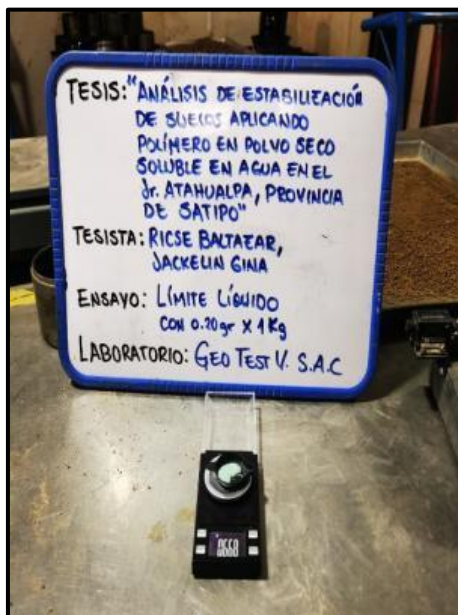 TESIS: "ANÁLISIS DE ESTABILIZACIÓN
DE SUELOS APLICANDO
POLÍMERO EN POLVO SECO
SOLUBLE EN AGUA EN EL
Jr. ATAHUALPA, PROVINCIA
DE SATIPO"
TESISTA: RICSE BALTAZAR,
JACKELIN GINA
ENSAYO: LÍMITE LÍQUIDO
CON 0.20gr X 1Kg
LABORATORIO: GEO TEST V. S.A.C